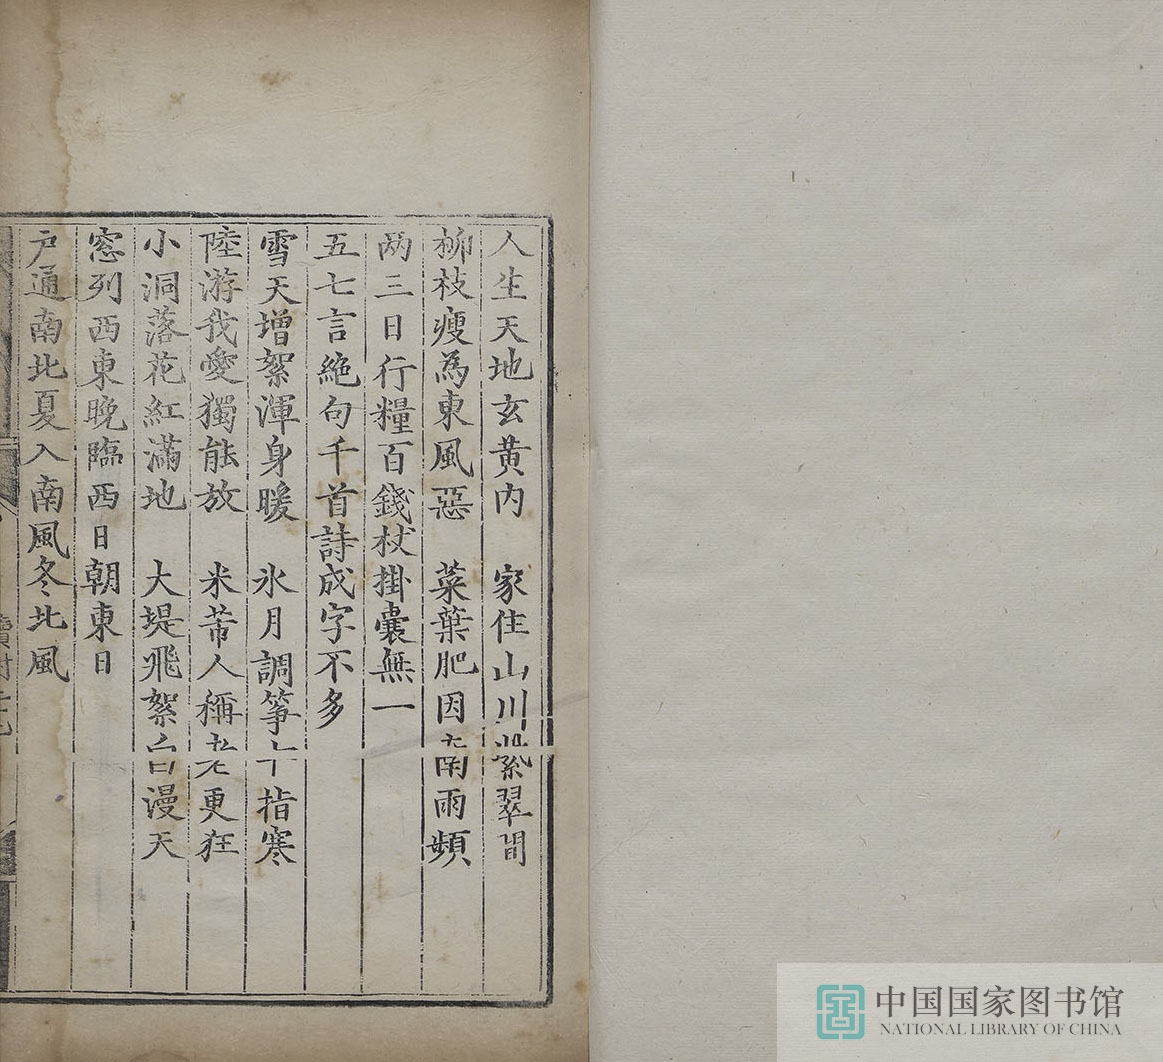 人生天地玄黄内　家住山川紫翠間
柳枝瘦為東風惡　菜葉肥因南雨頻
两三日行糧百錢杖掛囊無一
五七言絶句千首詩成字不多
雪天增絮渾身暖　氷月調筝十指寒
陸游我愛獨能放　米芾人稱老更狂
小洞落花紅滿地　大堤飛絮白漫天
窓列西東晚臨西日朝東日
户通南北夏入南風冬北風
中国国家图书馆
NATIONAL LIBRARY OF CHINA